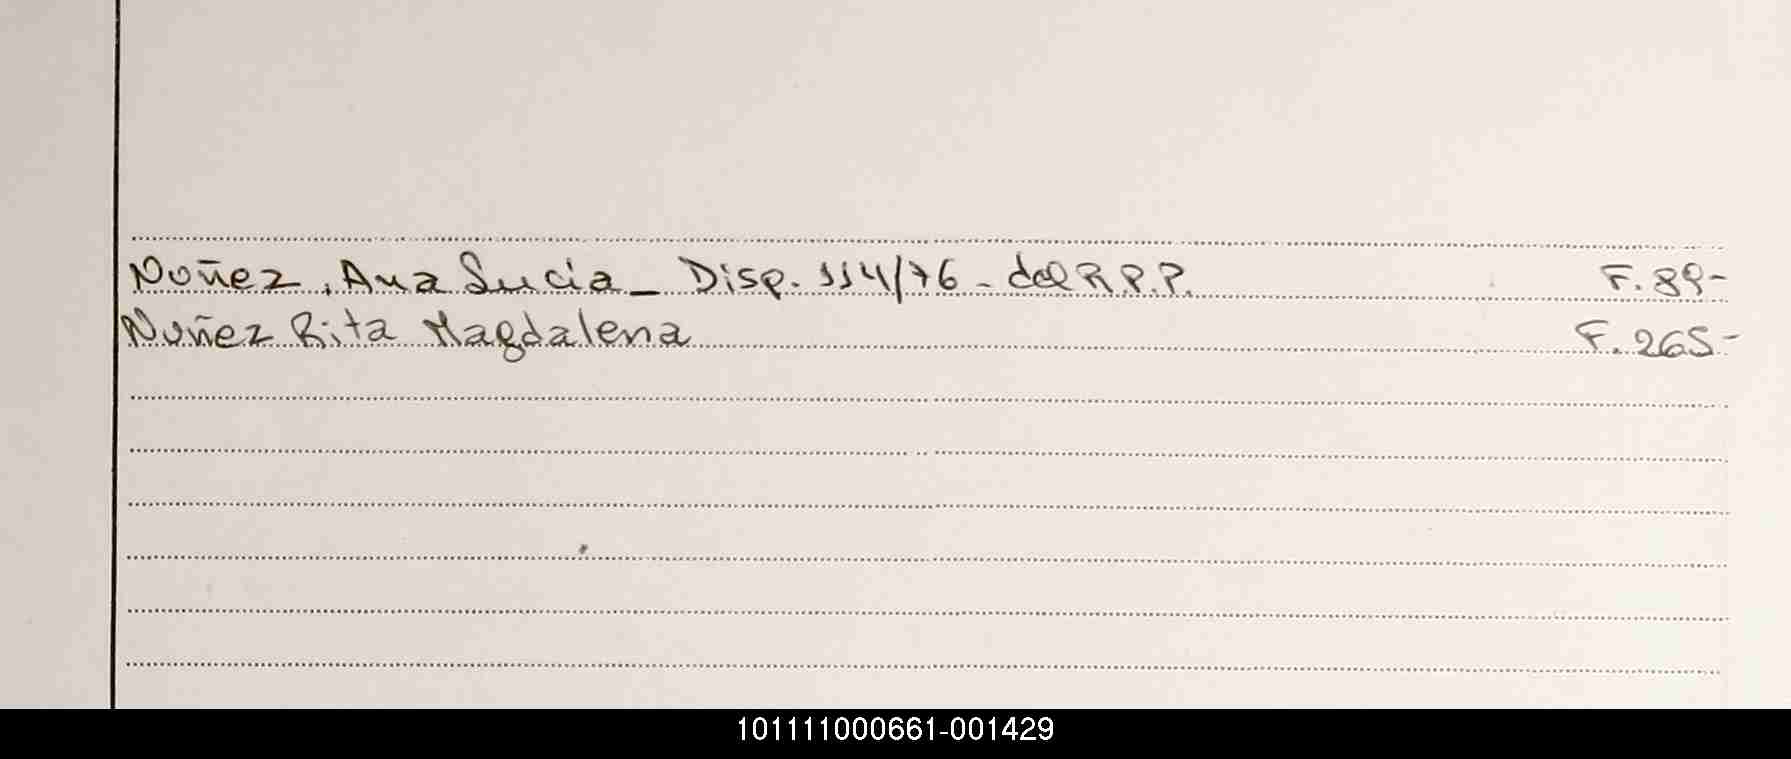 Nuñez, Ana Lucia - Disp. 114/76 - del R.P.P. F. 89-
Nuñez Rita Magdalena F. 265-
101111000661-001429